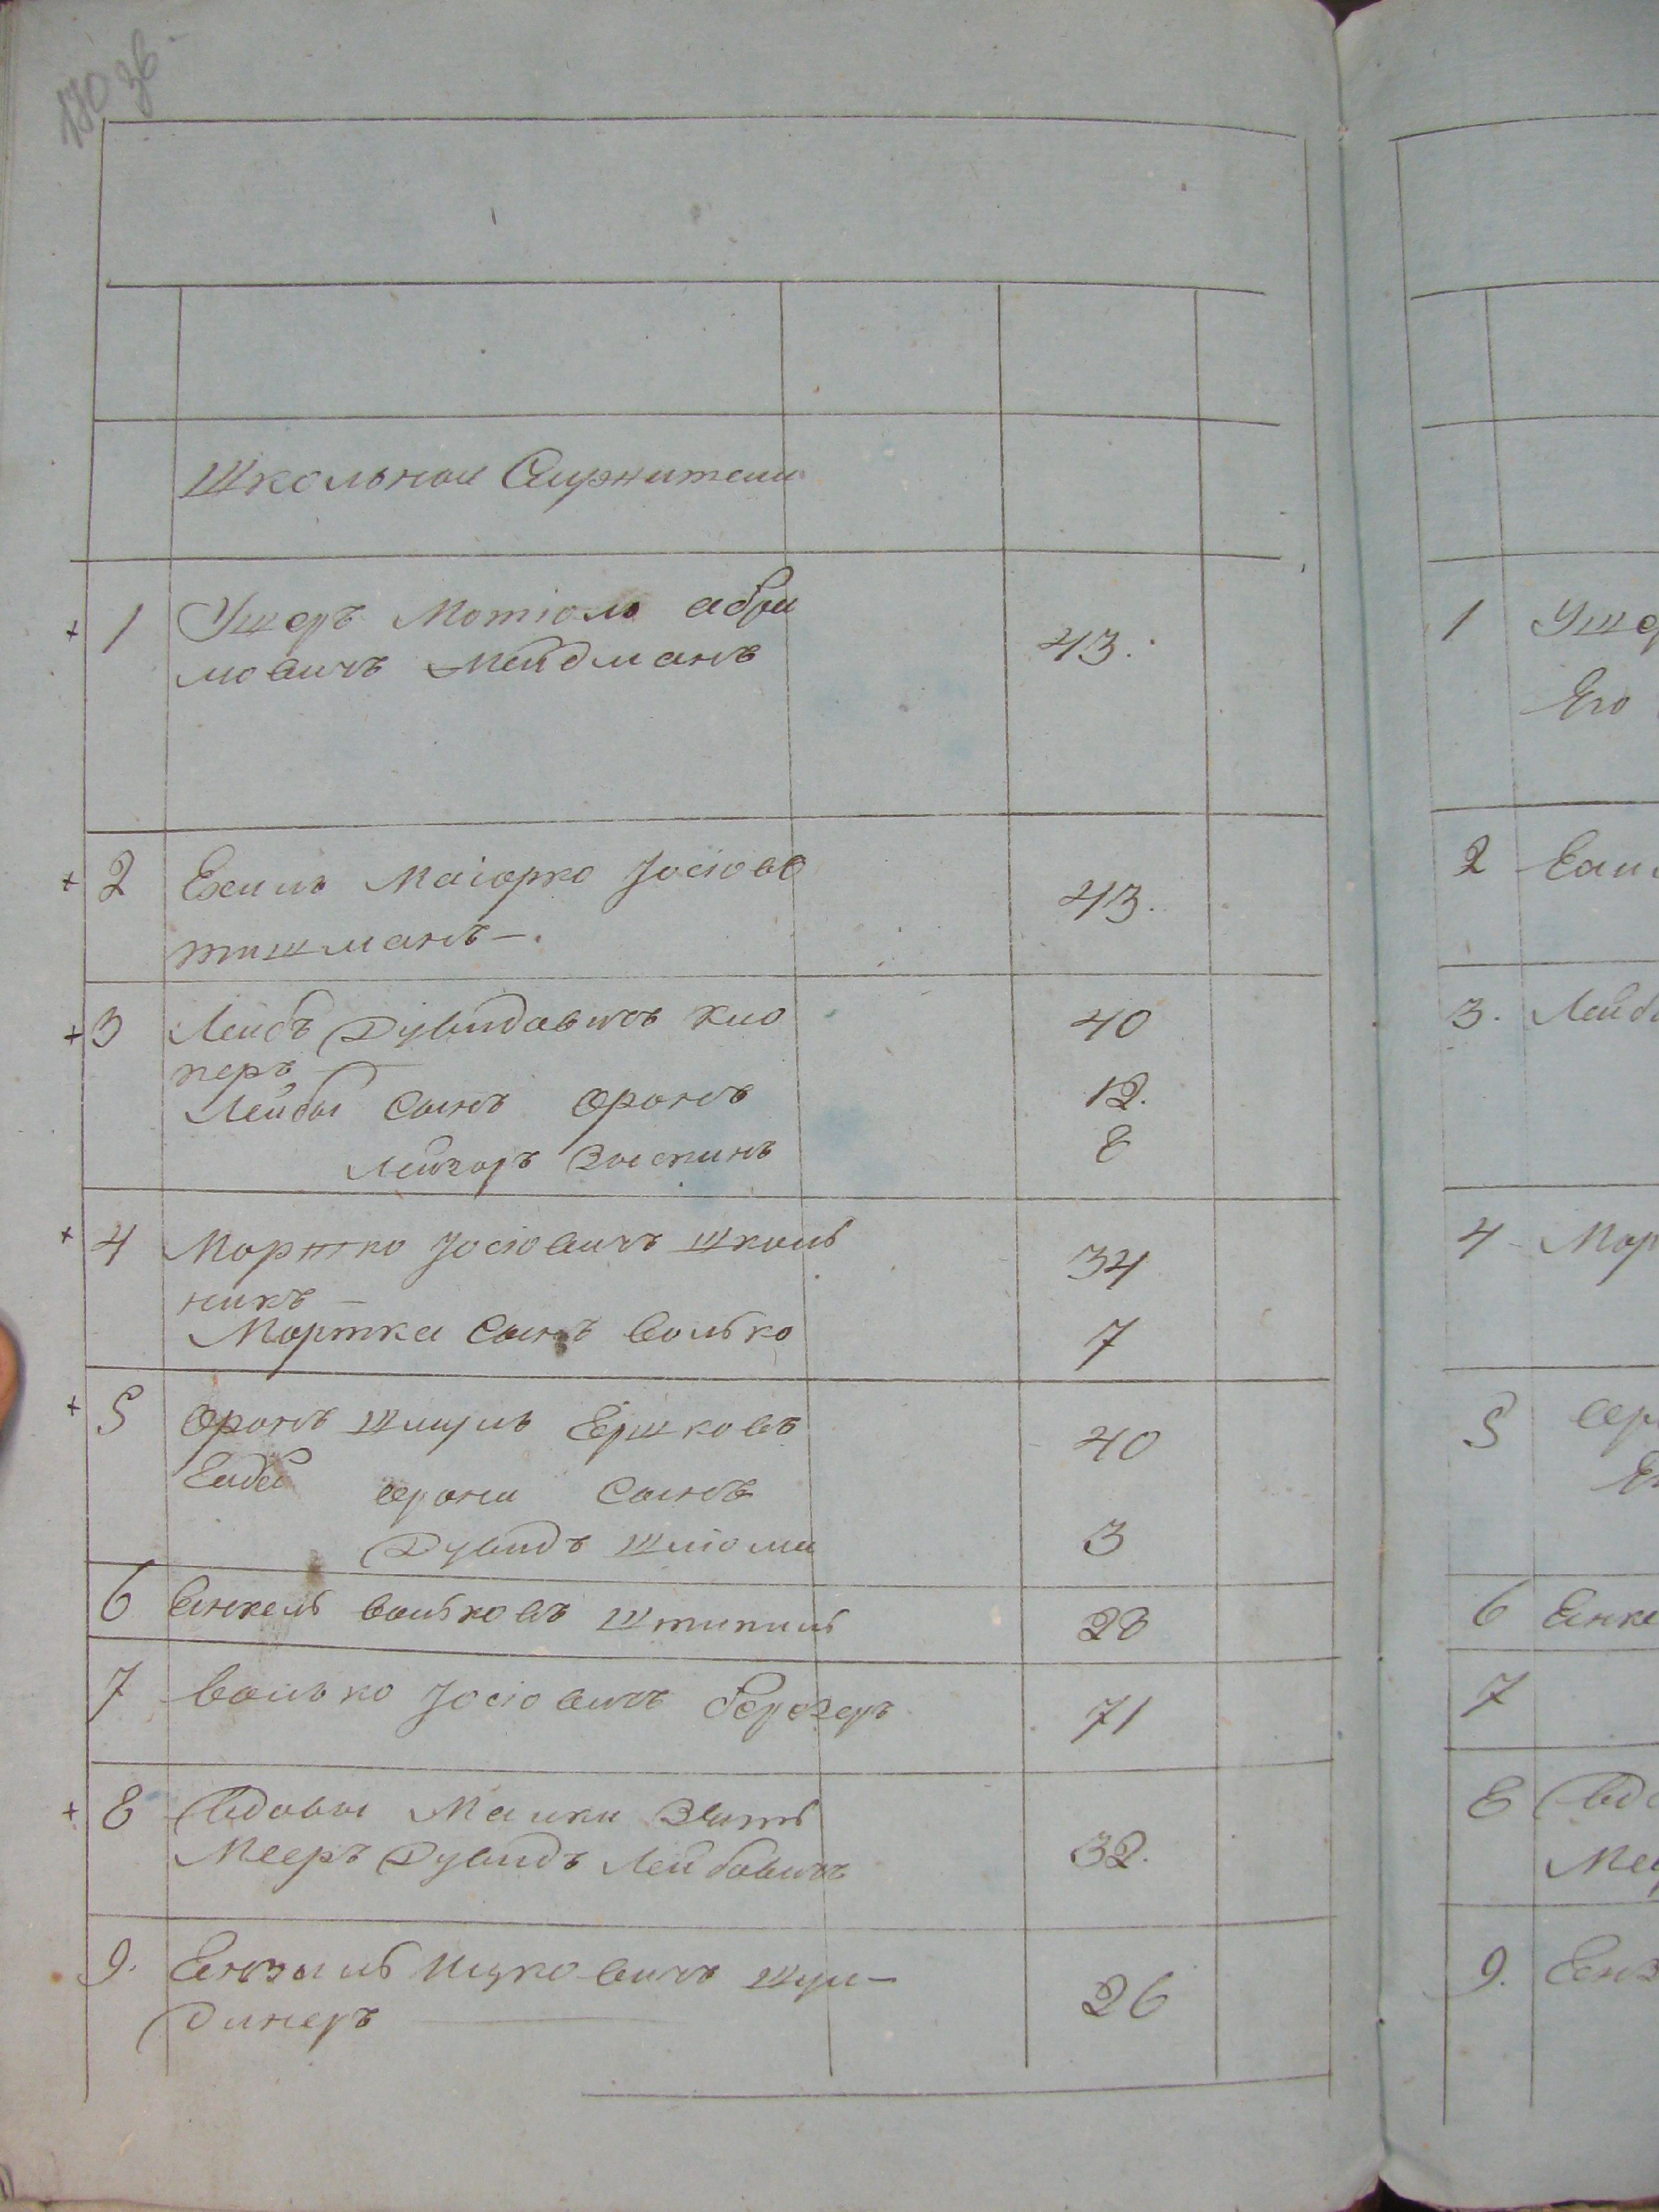 170 зв
Школьные Служители
1 Ушеръ Мотіоль Абра
мовичъ Мейдманъ 43.
2 Ехиль Маіорко Іосіов
тишманъ 43.
3 Лейбъ Дувидовичъ Кио
перъ 40
Лейбы Сынъ Оронъ 12.
Лейзоръ Зыскинъ 8
4 Мортко Іосіовичъ Школь
никъ 34
Мортка Сынъ Волько 7
5 Оронъ Шмуль Ершковъ 40
Орона Сынъ
Дувидъ Шліома 3
6 Янкель Вольковъ 28
7 Волько Іосіовичъ 71
8 Вдовы Малки Зять
Мееръ Дувидъ Лейбовичъ 32.
9. Ензыль Ицковичъ Шуль-
динеръ 26
1 Ушер
Его
2
3. Лейб
4 Мор
5
6 Янке
7
8 Вдо
Мее
9. Енз